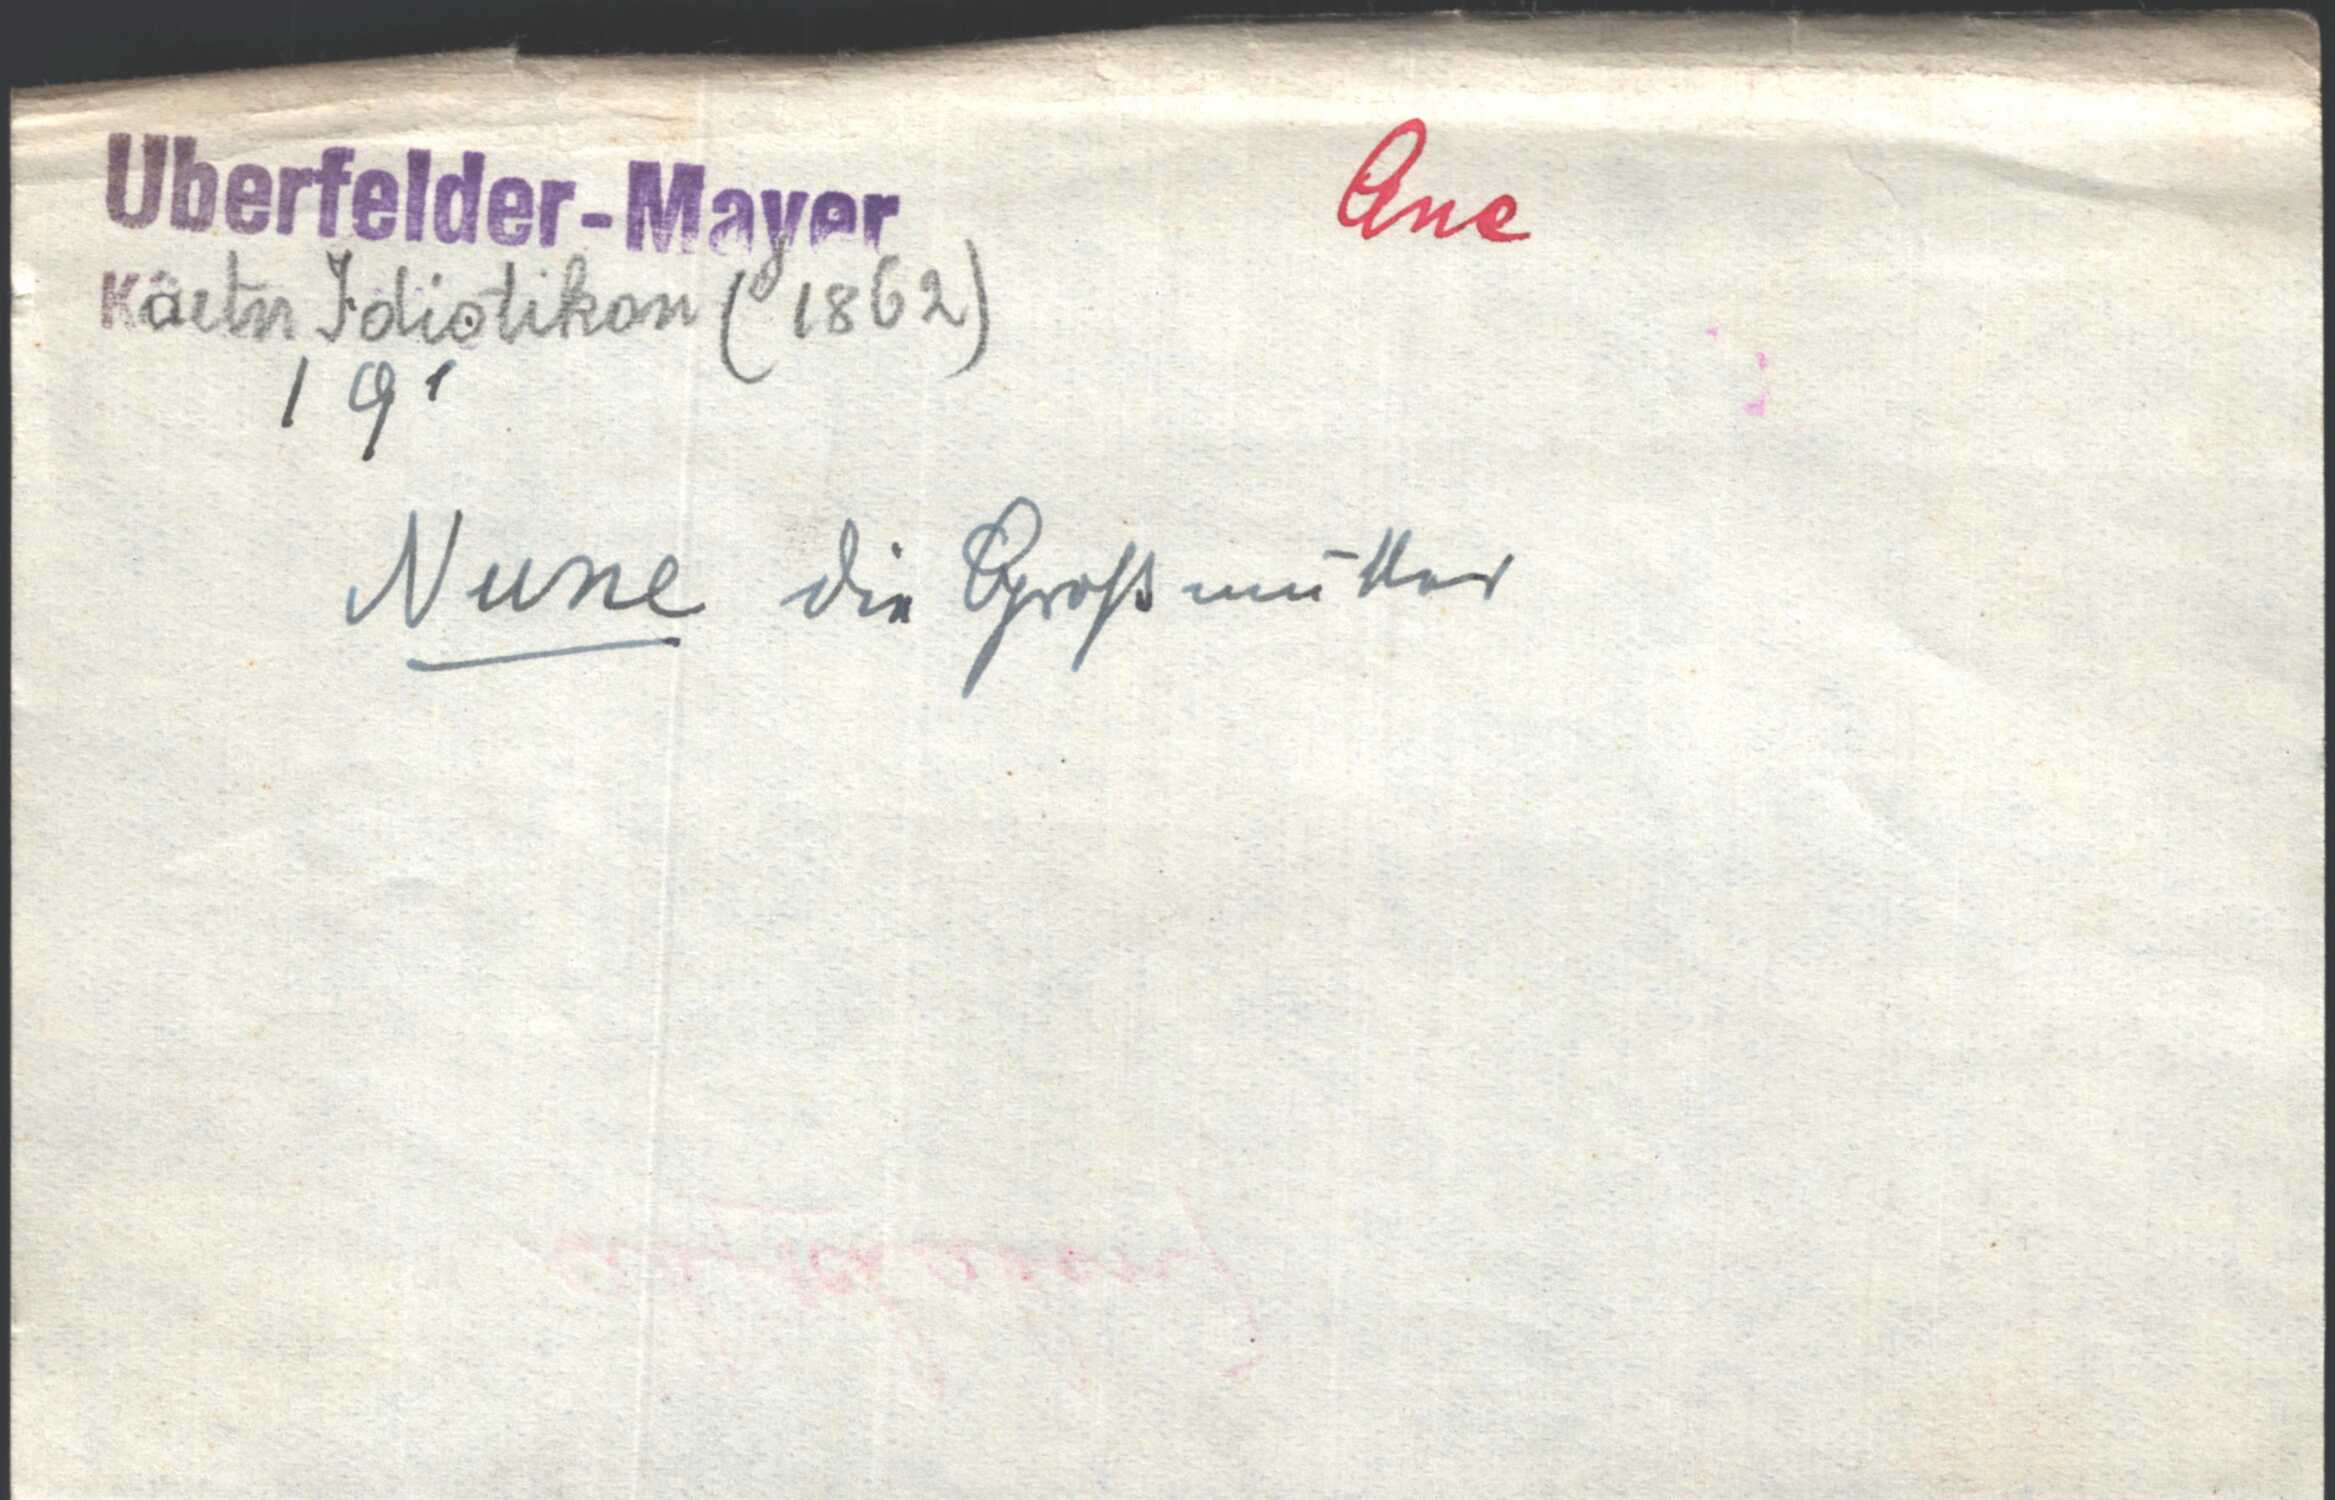 Uberfelder-Mayer
Ane
Kärtn Idiotikon (1862)
191
Nune die Großmutter